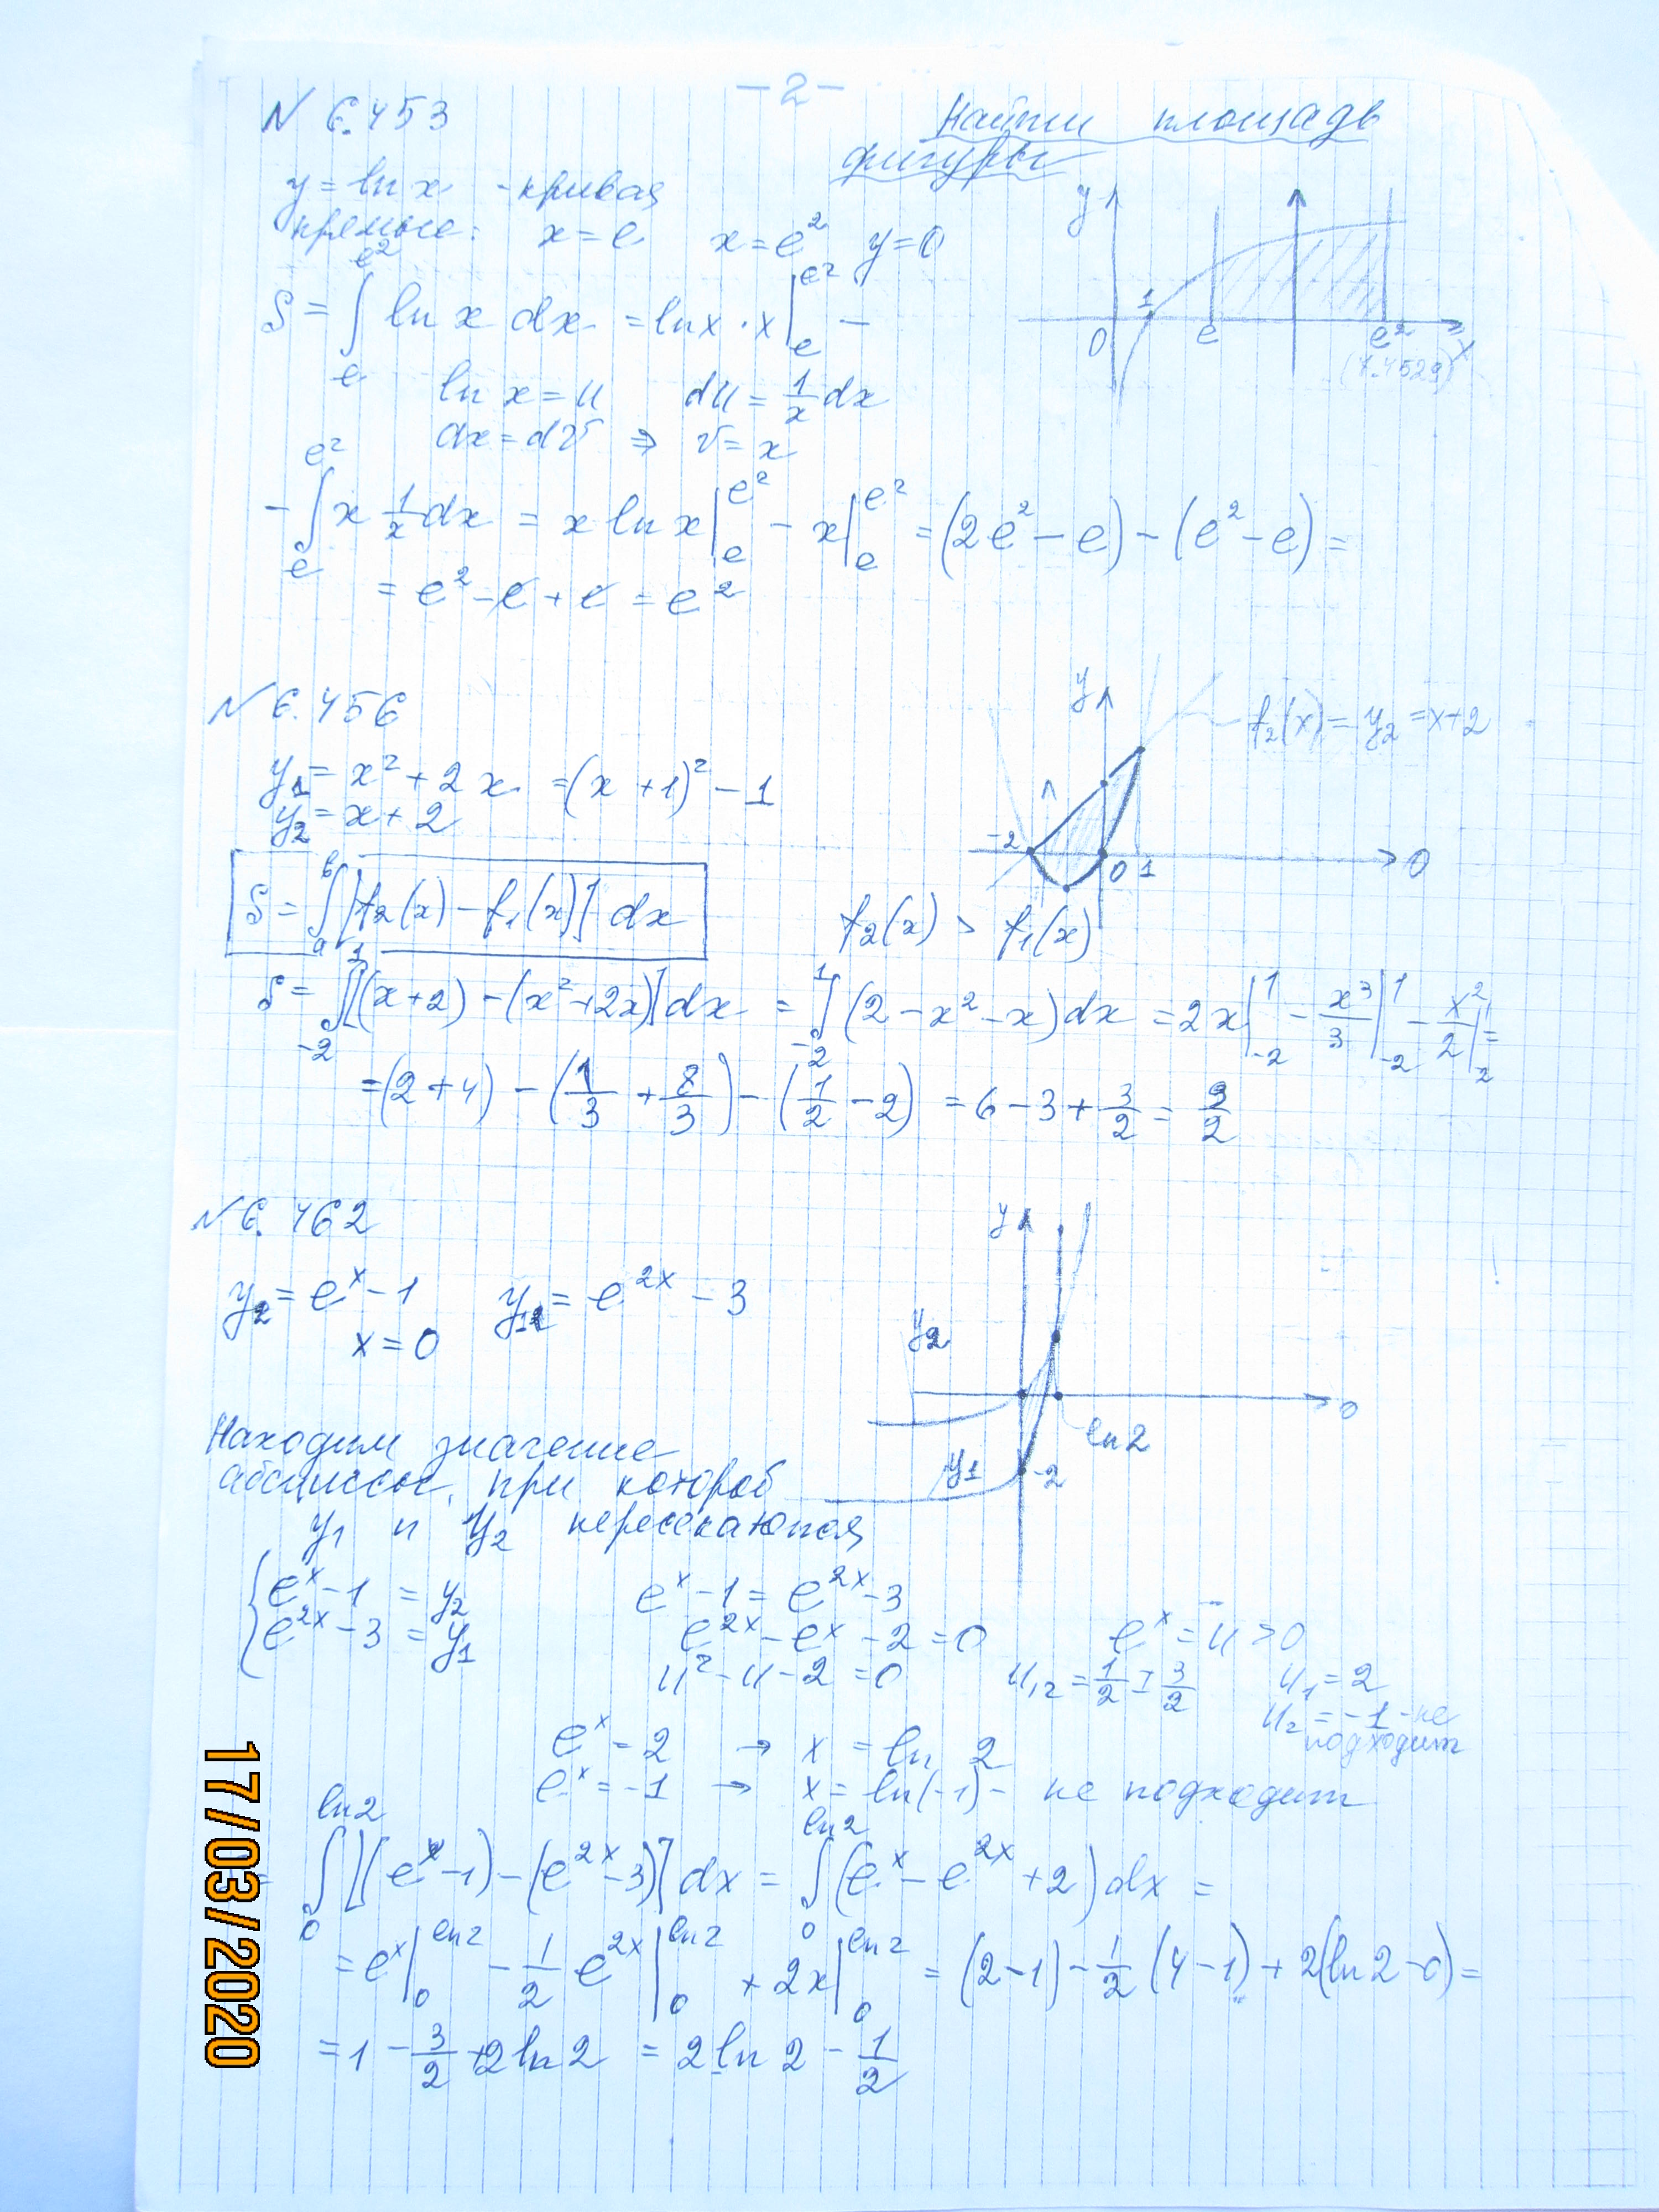 - 2 -
N 6.453
Найти площадь
фигуры
y = ln x - кривая
прямые: x = e x = e² y = 0
S = ∫_e^{e²} ln x dx = ln x · x |_e^{e²} -
ln x = u du = 1/x dx
dx = dv ⇒ v = x
- ∫_e^{e²} x 1/x dx = x ln x |_e^{e²} - x |_e^{e²} = (2e² - e) - (e² - e) =
= e² - e + e = e²
y
1
0 e e² x
N 6.456
y₁ = x² + 2x = (x + 1)² - 1
y₂ = x + 2
y
f₂(x) = y₂ = x + 2
-2 0 1 0
S = ∫_a^b [f₂(x) - f₁(x)] dx
f₂(x) > f₁(x)
S = ∫_{-2}^1 [(x+2) - (x²+2x)] dx = ∫_{-2}^1 (2 - x² - x) dx = 2x |_{-2}^1 - x³/3 |_{-2}^1 - x²/2 |_{-2}^1 =
= (2+4) - (1/3 + 8/3) - (1/2 - 2) = 6 - 3 + 3/2 = 9/2
N 6.462
y₂ = e^x - 1 y₁ = e^{2x} - 3
x = 0
y
y₂
0
ln 2
y₁ -2
Находим значение
абсциссы, при которой
y₁ и y₂ пересекаются
{ e^x - 1 = y₂ e^x - 1 = e^{2x} - 3
e^{2x} - 3 = y₁ e^{2x} - e^x - 2 = 0 e^x = u > 0
u² - u - 2 = 0 u₁,₂ = 1/2 ± 3/2 u₁ = 2
u₂ = -1 - не
подходит
e^x = 2 → x = ln 2
e^x = -1 → x = ln(-1) - не подходит
= ∫_0^{ln2} [(e^x - 1) - (e^{2x} - 3)] dx = ∫_0^{ln2} (e^x - e^{2x} + 2) dx =
= e^x |_0^{ln2} - 1/2 e^{2x} |_0^{ln2} + 2x |_0^{ln2} = (2-1) - 1/2 (4-1) + 2(ln 2 - 0) =
= 1 - 3/2 + 2 ln 2 = 2 ln 2 - 1/2
17/03/2020